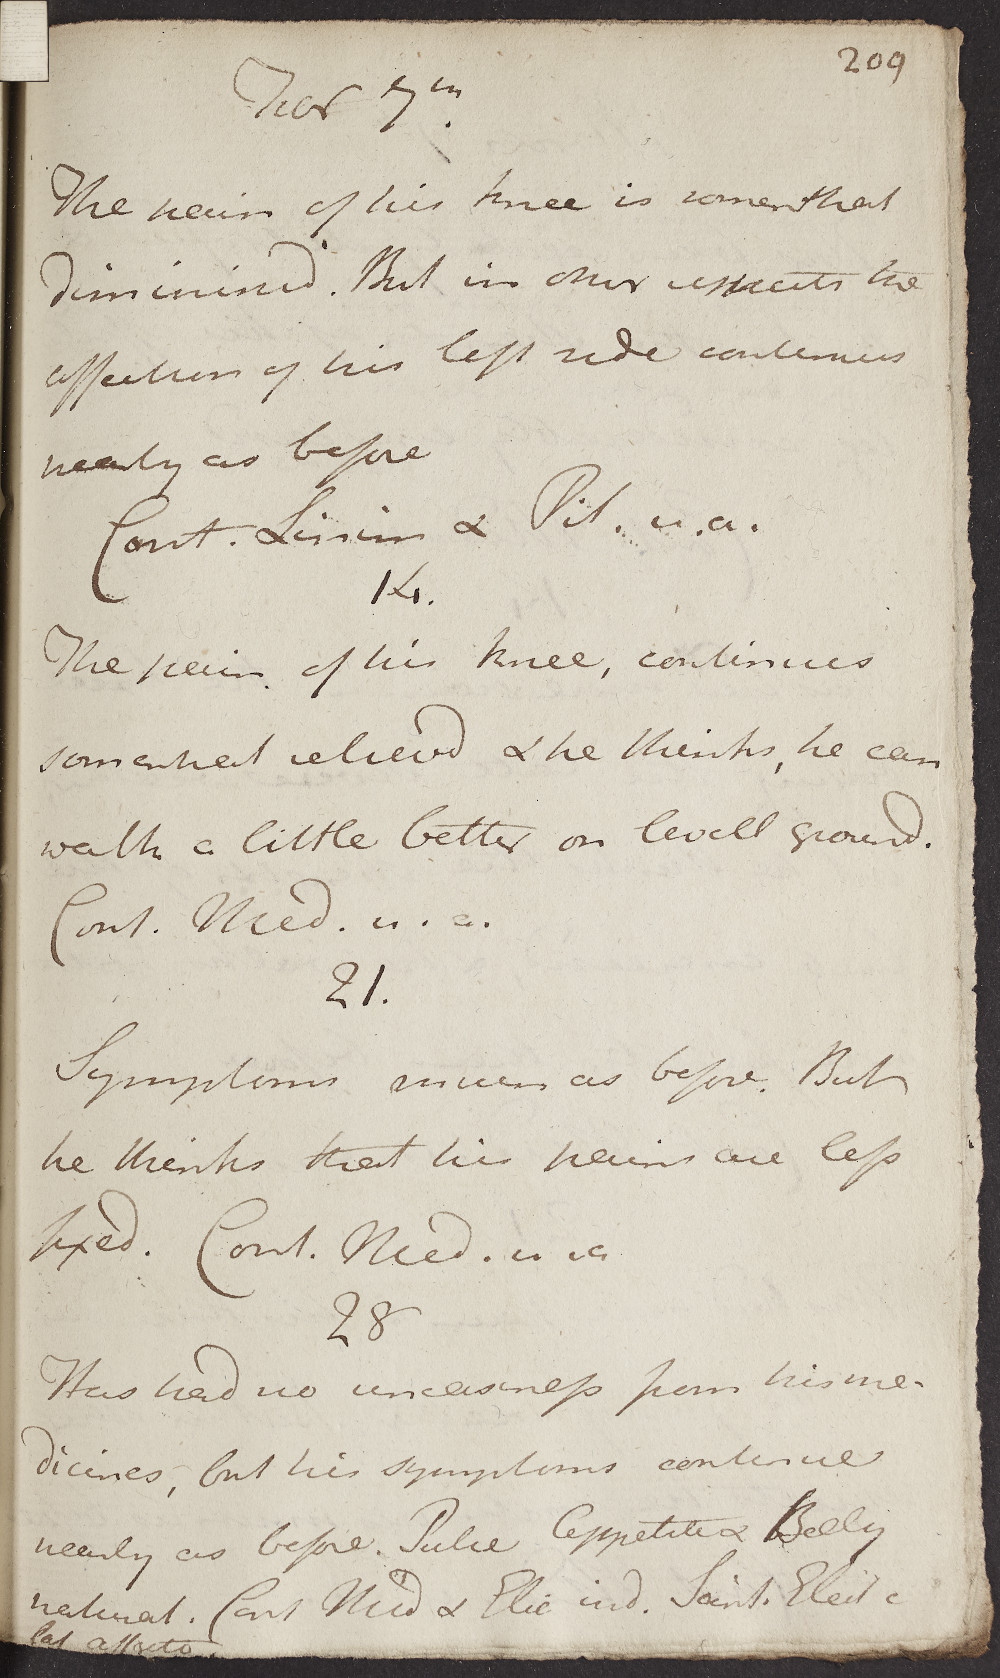 209
Nov 7th.
The pain of his knee is somewhat
diminised. But in other respects the
affection of his left side continues
nearly as before
Cont. Linim & Pil. u.a.
14.
The pain of his knee, continues
somewhat relieved & he thinks, he can
walk a little better on levell ground.
Cont. Med. u. a.
21.
Symptoms much as before. But
he thinks that his pains are less
fixed. Cont. Med. u a
28
Has had no uneasiness from his me-
dicines, but his symptoms continue
nearly as before. Pulse Appetite & Belly
natural. Cont Med & Elec ind. Scint. Elect e
lat affecto